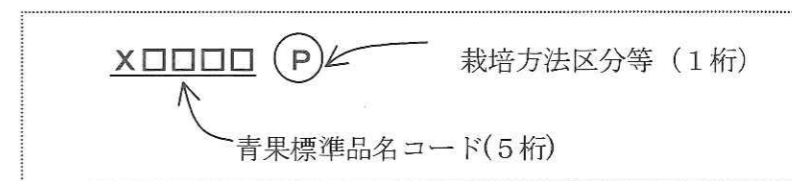 X□□□□ Ⓟ 栽培方法区分等（１桁）
青果標準品名コード(５桁)